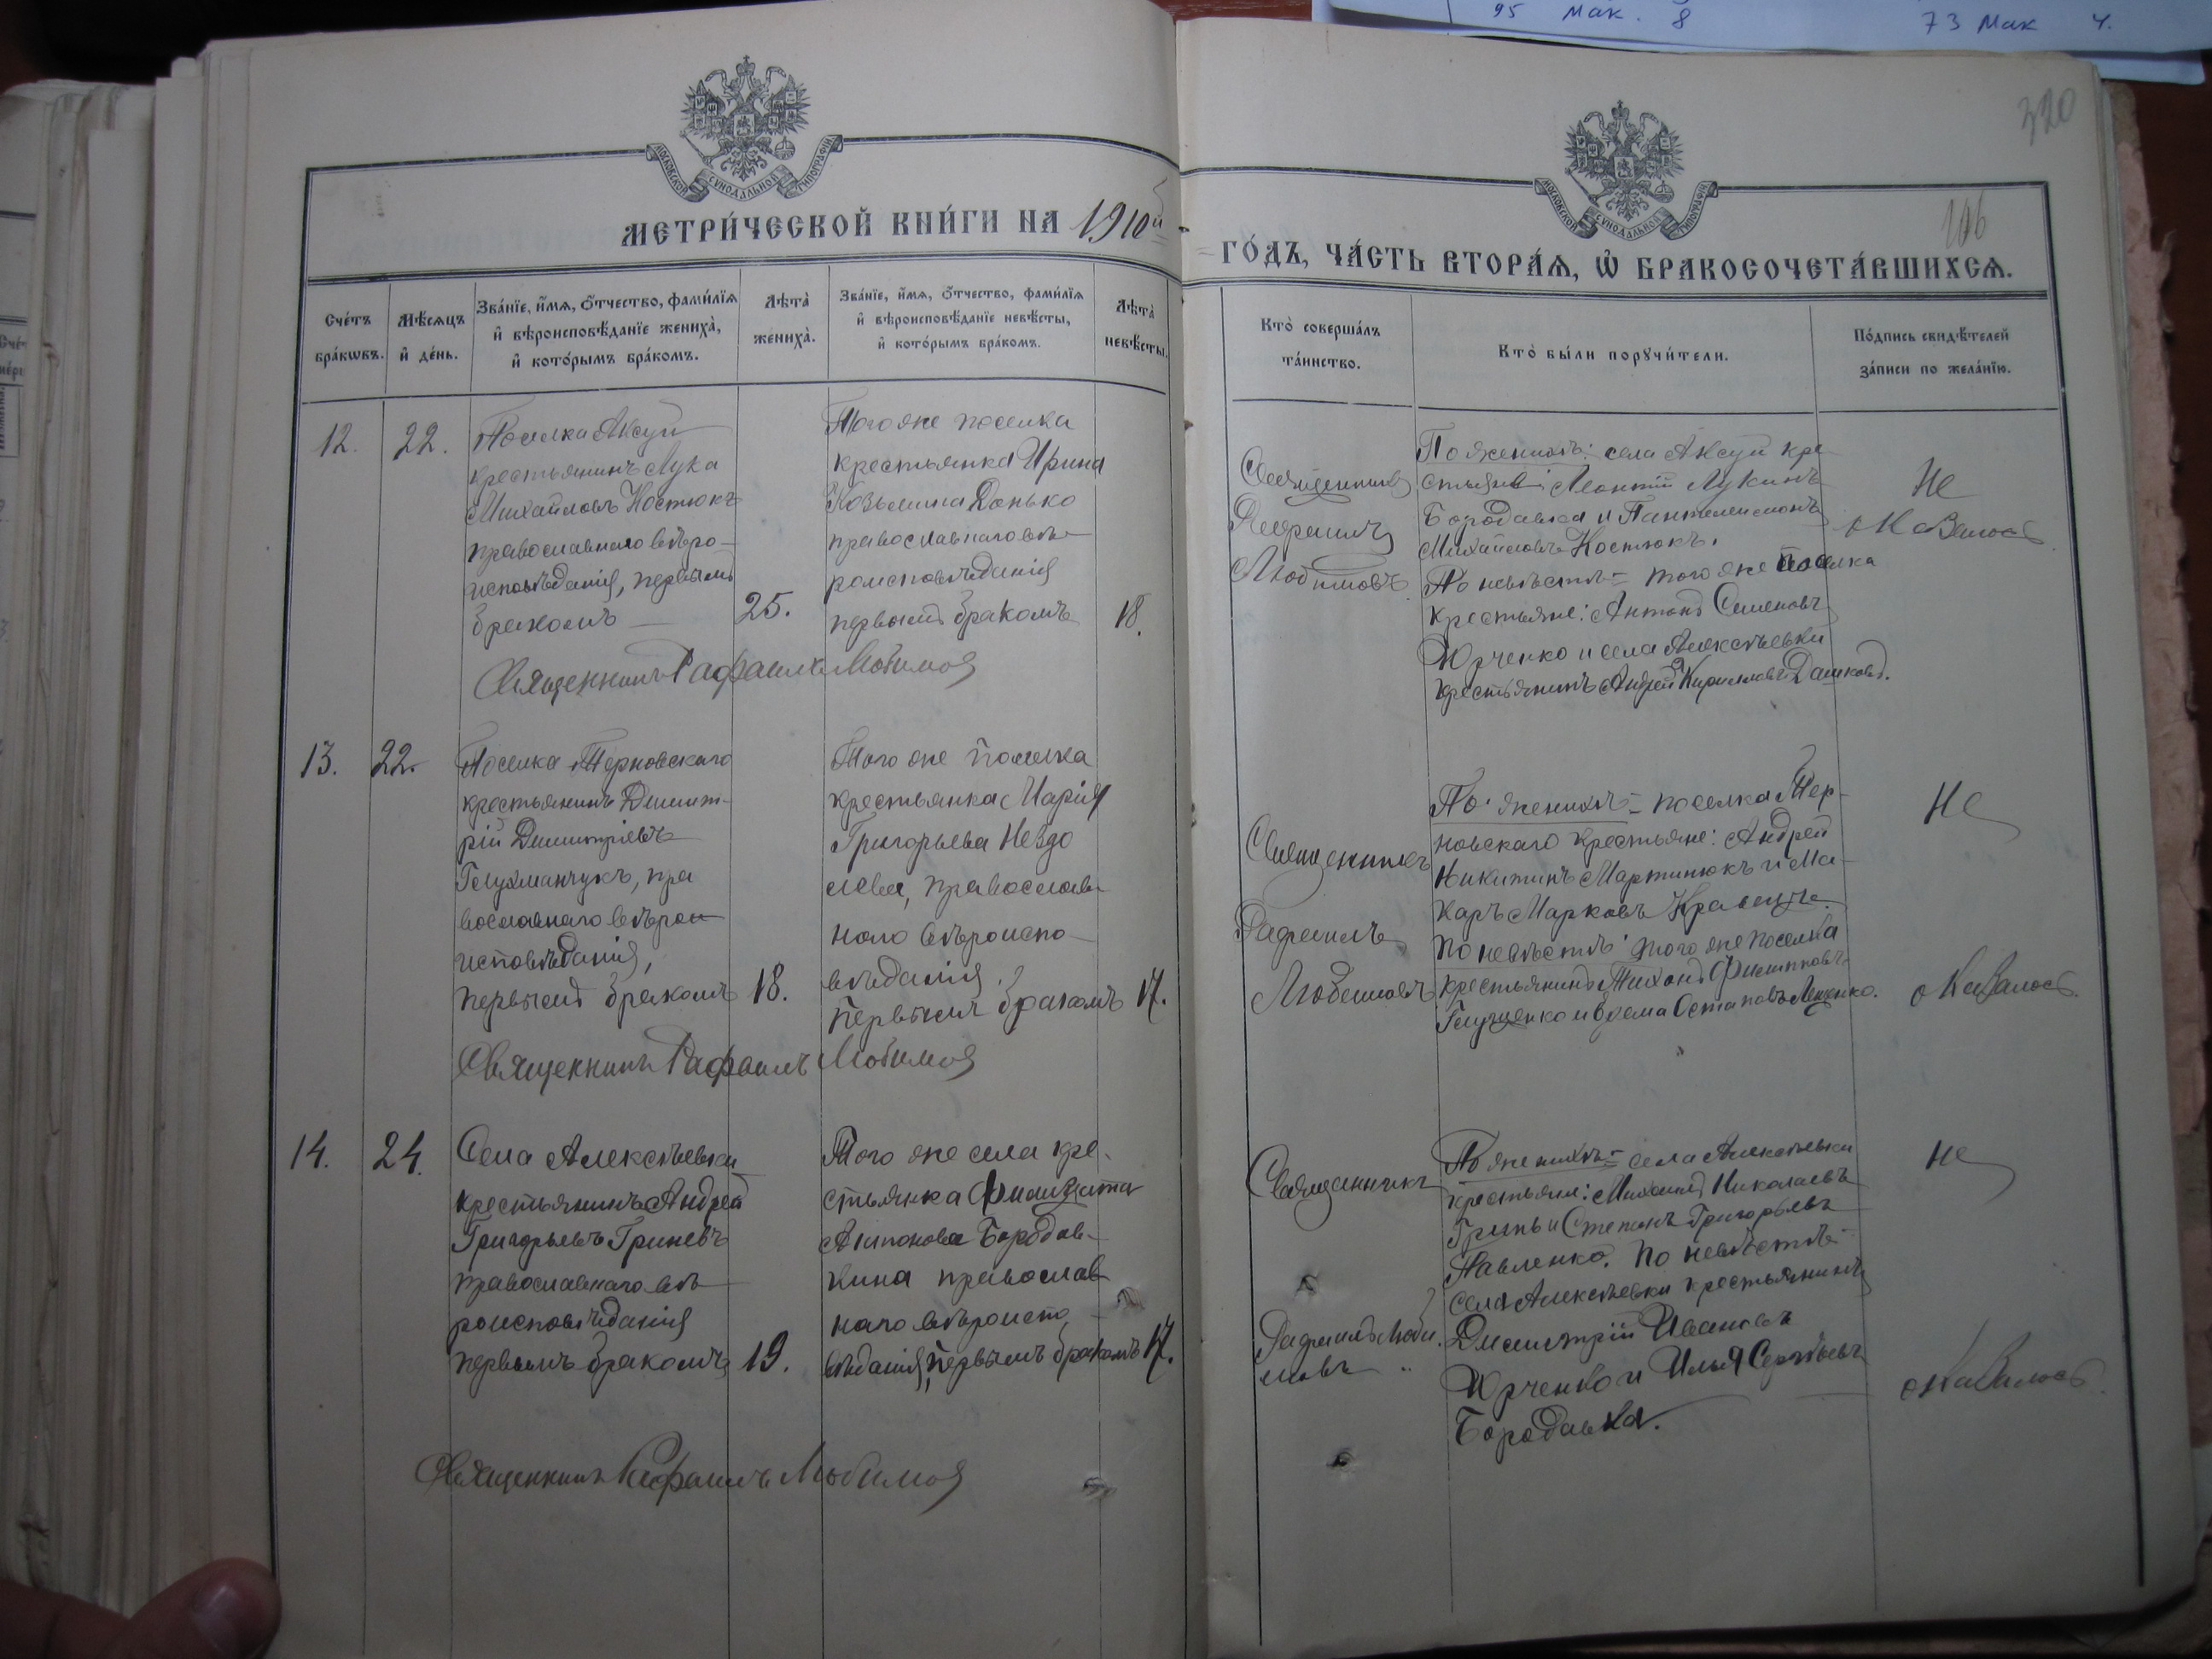 95 мак. 8
73 мак 4.
320
116
МОСКОВСКОЙ СѴНОДАЛЬНОЙ ТИПОГРАФІИ
МОСКОВСКОЙ СѴНОДАЛЬНОЙ ТИПОГРАФІИ
МЕТРИ́ЧЕСКОЙ КНИ́ГИ НА 1910й
ГО́ДЪ, ЧА́СТЬ ВТОРА́Ѧ, Ѡ҆ БРАКОСОЧЕТА́ВШИХСѦ.
Сче́тъ
бра́кѡвъ.
Мѣ́сѧцъ
и҆ де́нь.
Зва́нїе, и҆́мѧ, ѻ҆́тчество, фами́лїѧ
и҆ вѣроисповѣ́данїе жениха̀,
и҆ кото́рымъ бра́комъ.
Лѣта̀
жениха̀.
Зва́нїе, и҆́мѧ, ѻ҆́тчество, фами́лїѧ
и҆ вѣроисповѣ́данїе невѣ́сты,
и҆ кото́рымъ бра́комъ.
Лѣта̀
невѣ́сты.
Кто̀ соверша́лъ
та́инство.
Кто̀ бы́ли порꙋчи́тели.
По́дпись свидѣ́телей
за́писи по жела́нїю.
12.
22.
Поселка Аксуй
крестьянинъ Лука
Михайловъ Костюкъ
православнаго вѣро-
исповѣданія, первымъ
бракомъ
25.
Того же поселка
крестьянка Ирина
Козьмина Донько
православнаго вѣ-
роисповѣданія
первымъ бракомъ
18.
Священникъ
Рафаилъ
Любимовъ.
По женихѣ: села Аксуй кре-
стьяне: Леонтій Лукинъ
Бородавка и Пантелеимонъ
Михайловъ Костюкъ.
По невѣстѣ- того же поселка
крестьяне: Антонъ Семеновъ
Юрченко и села Алексѣевки
крестьянинъ Андрей Кирилловъ Дашковъ.
Не
оказалось
Священникъ Рафаилъ Любимовъ
13.
22.
Поселка Терновскаго
крестьянинъ Димит-
рій Димитріевъ
Гецманчукъ, пра
вославнаго вѣрои
исповѣданія,
первымъ бракомъ
18.
Того же поселка
крестьянка Марія
Григорьева Нездо
лева, православ
наго вѣроиспо-
вѣданія,
первымъ бракомъ
17.
Священникъ
Рафаилъ
Любимовъ
По женихѣ- поселка Тер-
новскаго крестьяне: Андрей
Никитинъ Мартинюкъ и Ма-
каръ Марковъ Кравецъ.
По невѣстѣ: того же поселка
крестьянинъ Тихонъ Филипповъ
Глущенко и Ѳома Остаповъ Лещенко.
Не
оказалось.
Священникъ Рафаилъ Любимовъ
14.
24.
Села Алексѣевки
крестьянинъ Андрей
Григорьевъ Гриневъ
православнаго вѣ
роисповѣданія
первымъ бракомъ
19.
Того же села кре-
стьянка Филицата
Антонова Бородав-
кина православ
наго вѣроиспо
вѣданія, первымъ бракомъ
17.
Священникъ
Рафаилъ Люби-
мовъ
По женихѣ- села Алексѣевки
крестьяне: Михаилъ Николаевъ
Гринь и Степанъ Григорьевъ
Павленко. По невѣстѣ-
села Алексѣевки крестьянинъ
Димитрій Ивановъ
Юрченко и Илья Сергѣевъ
Бородавка.
Не
оказалось.
Священникъ Рафаилъ Любимовъ